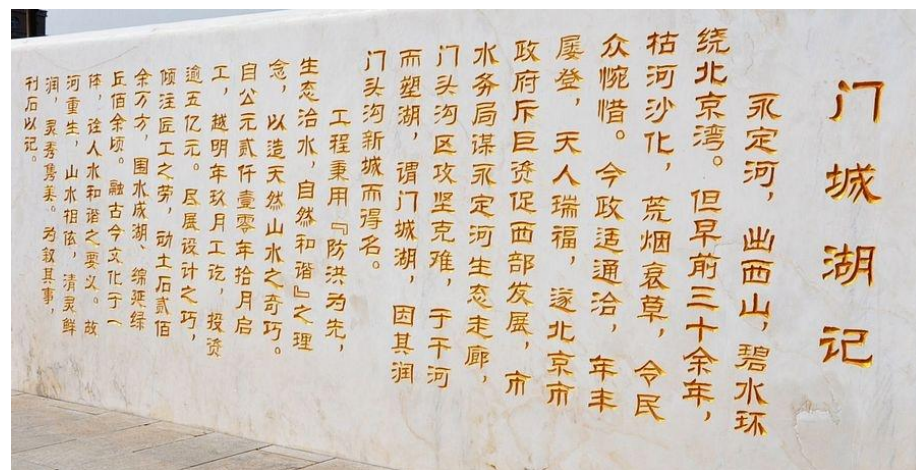 门城湖记
永定河，出西山，碧水环
绕北京湾。但早前三十余年，
枯河沙化，荒烟衰草，令民
众惋惜。今政适通洽，年丰
屡登，天人瑞福，遂北京市
政府斥巨资促西部发展，市
水务局谋永定河生态走廊，
门头沟区攻坚克难，于干河
而塑湖，谓门城湖，因其润
门头沟新城而得名。
工程秉用『防洪为先，
生态治水，自然和谐』之理
念，以造天然山水之奇巧。
自公元贰仟壹零年拾月启
工，越明年玖月工讫，投资
逾五亿元。尽展设计之巧，
倾注匠工之劳，动土石贰佰
余万方，围水成湖、绵延绿
丘佰余顷。融古今文化于一
体，诠人水和谐之要义。故
河重生，山水相依，清灵鲜
润，灵秀隽美。为叙其事，
刊石以记。